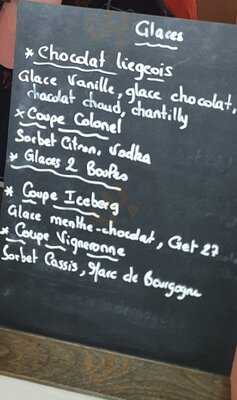 Glaces
* Chocolat liegeois
Glace Vanille, glace chocolat,
chocolat chaud, chantilly
* Coupe Colonel
Sorbet Citron, Vodka
* Glaces 2 Boules
* Coupe Iceberg
Glace menthe-chocolat, Get 27
* Coupe Vigneronne
Sorbet Cassis, Marc de Bourgogne